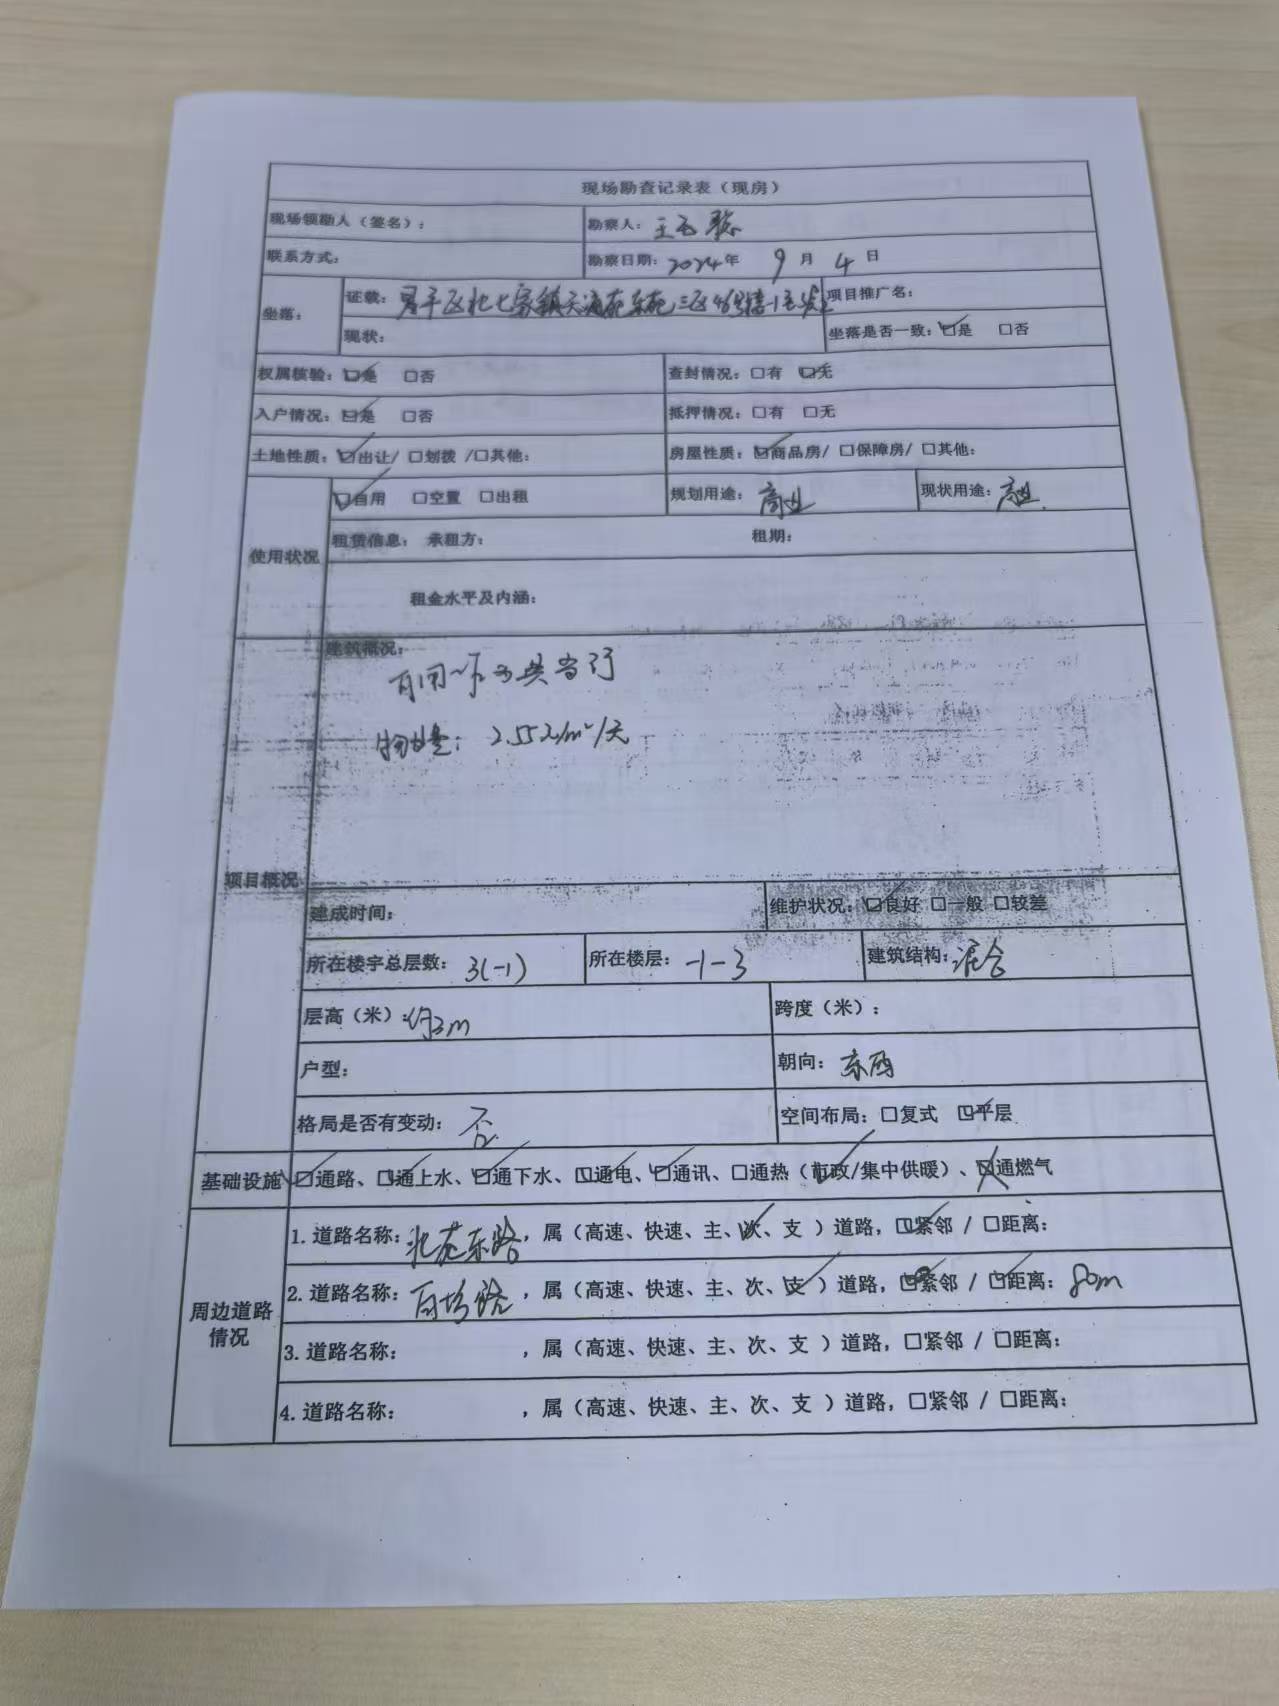 现场勘查记录表（现房）
现场领勘人（签名）：
勘察人：王
联系方式：
勘察日期：2024年 9 月 4 日
坐落：
证载：昌平区北七家镇天通苑东苑三区
项目推广名：
现状：
坐落是否一致：☑是 □否
权属核验：☑是 □否
查封情况：□有 ☑无
入户情况：☑是 □否
抵押情况：□有 □无
土地性质：☑出让/ □划拨 /□其他：
房屋性质：☑商品房/ □保障房/ □其他：
使用状况
☑自用 □空置 □出租
规划用途：商业
现状用途：商业
租赁信息： 承租方： 租期：
租金水平及内涵：
项目概况
建筑概况：
典当行
物业费：2.55元/m²/天
建成时间：
维护状况：☑良好 □一般 □较差
所在楼宇总层数：3(-1)
所在楼层：-1-3
建筑结构：混合
层高（米）：约3m
跨度（米）：
户型：
朝向：东西
格局是否有变动：否
空间布局：□复式 ☑平层
基础设施
☑通路、☑通上水、☑通下水、☑通电、☑通讯、□通热（市政/集中供暖）、☒通燃气
周边道路情况
1.道路名称：北苑东路，属（高速、快速、主、次、支 ）道路，☑紧邻 / □距离：
2.道路名称：路，属（高速、快速、主、次、支 ）道路，紧邻 / ☑距离：80m
3.道路名称： ，属（高速、快速、主、次、支 ）道路，□紧邻 / □距离：
4.道路名称： ，属（高速、快速、主、次、支 ）道路，□紧邻 / □距离：